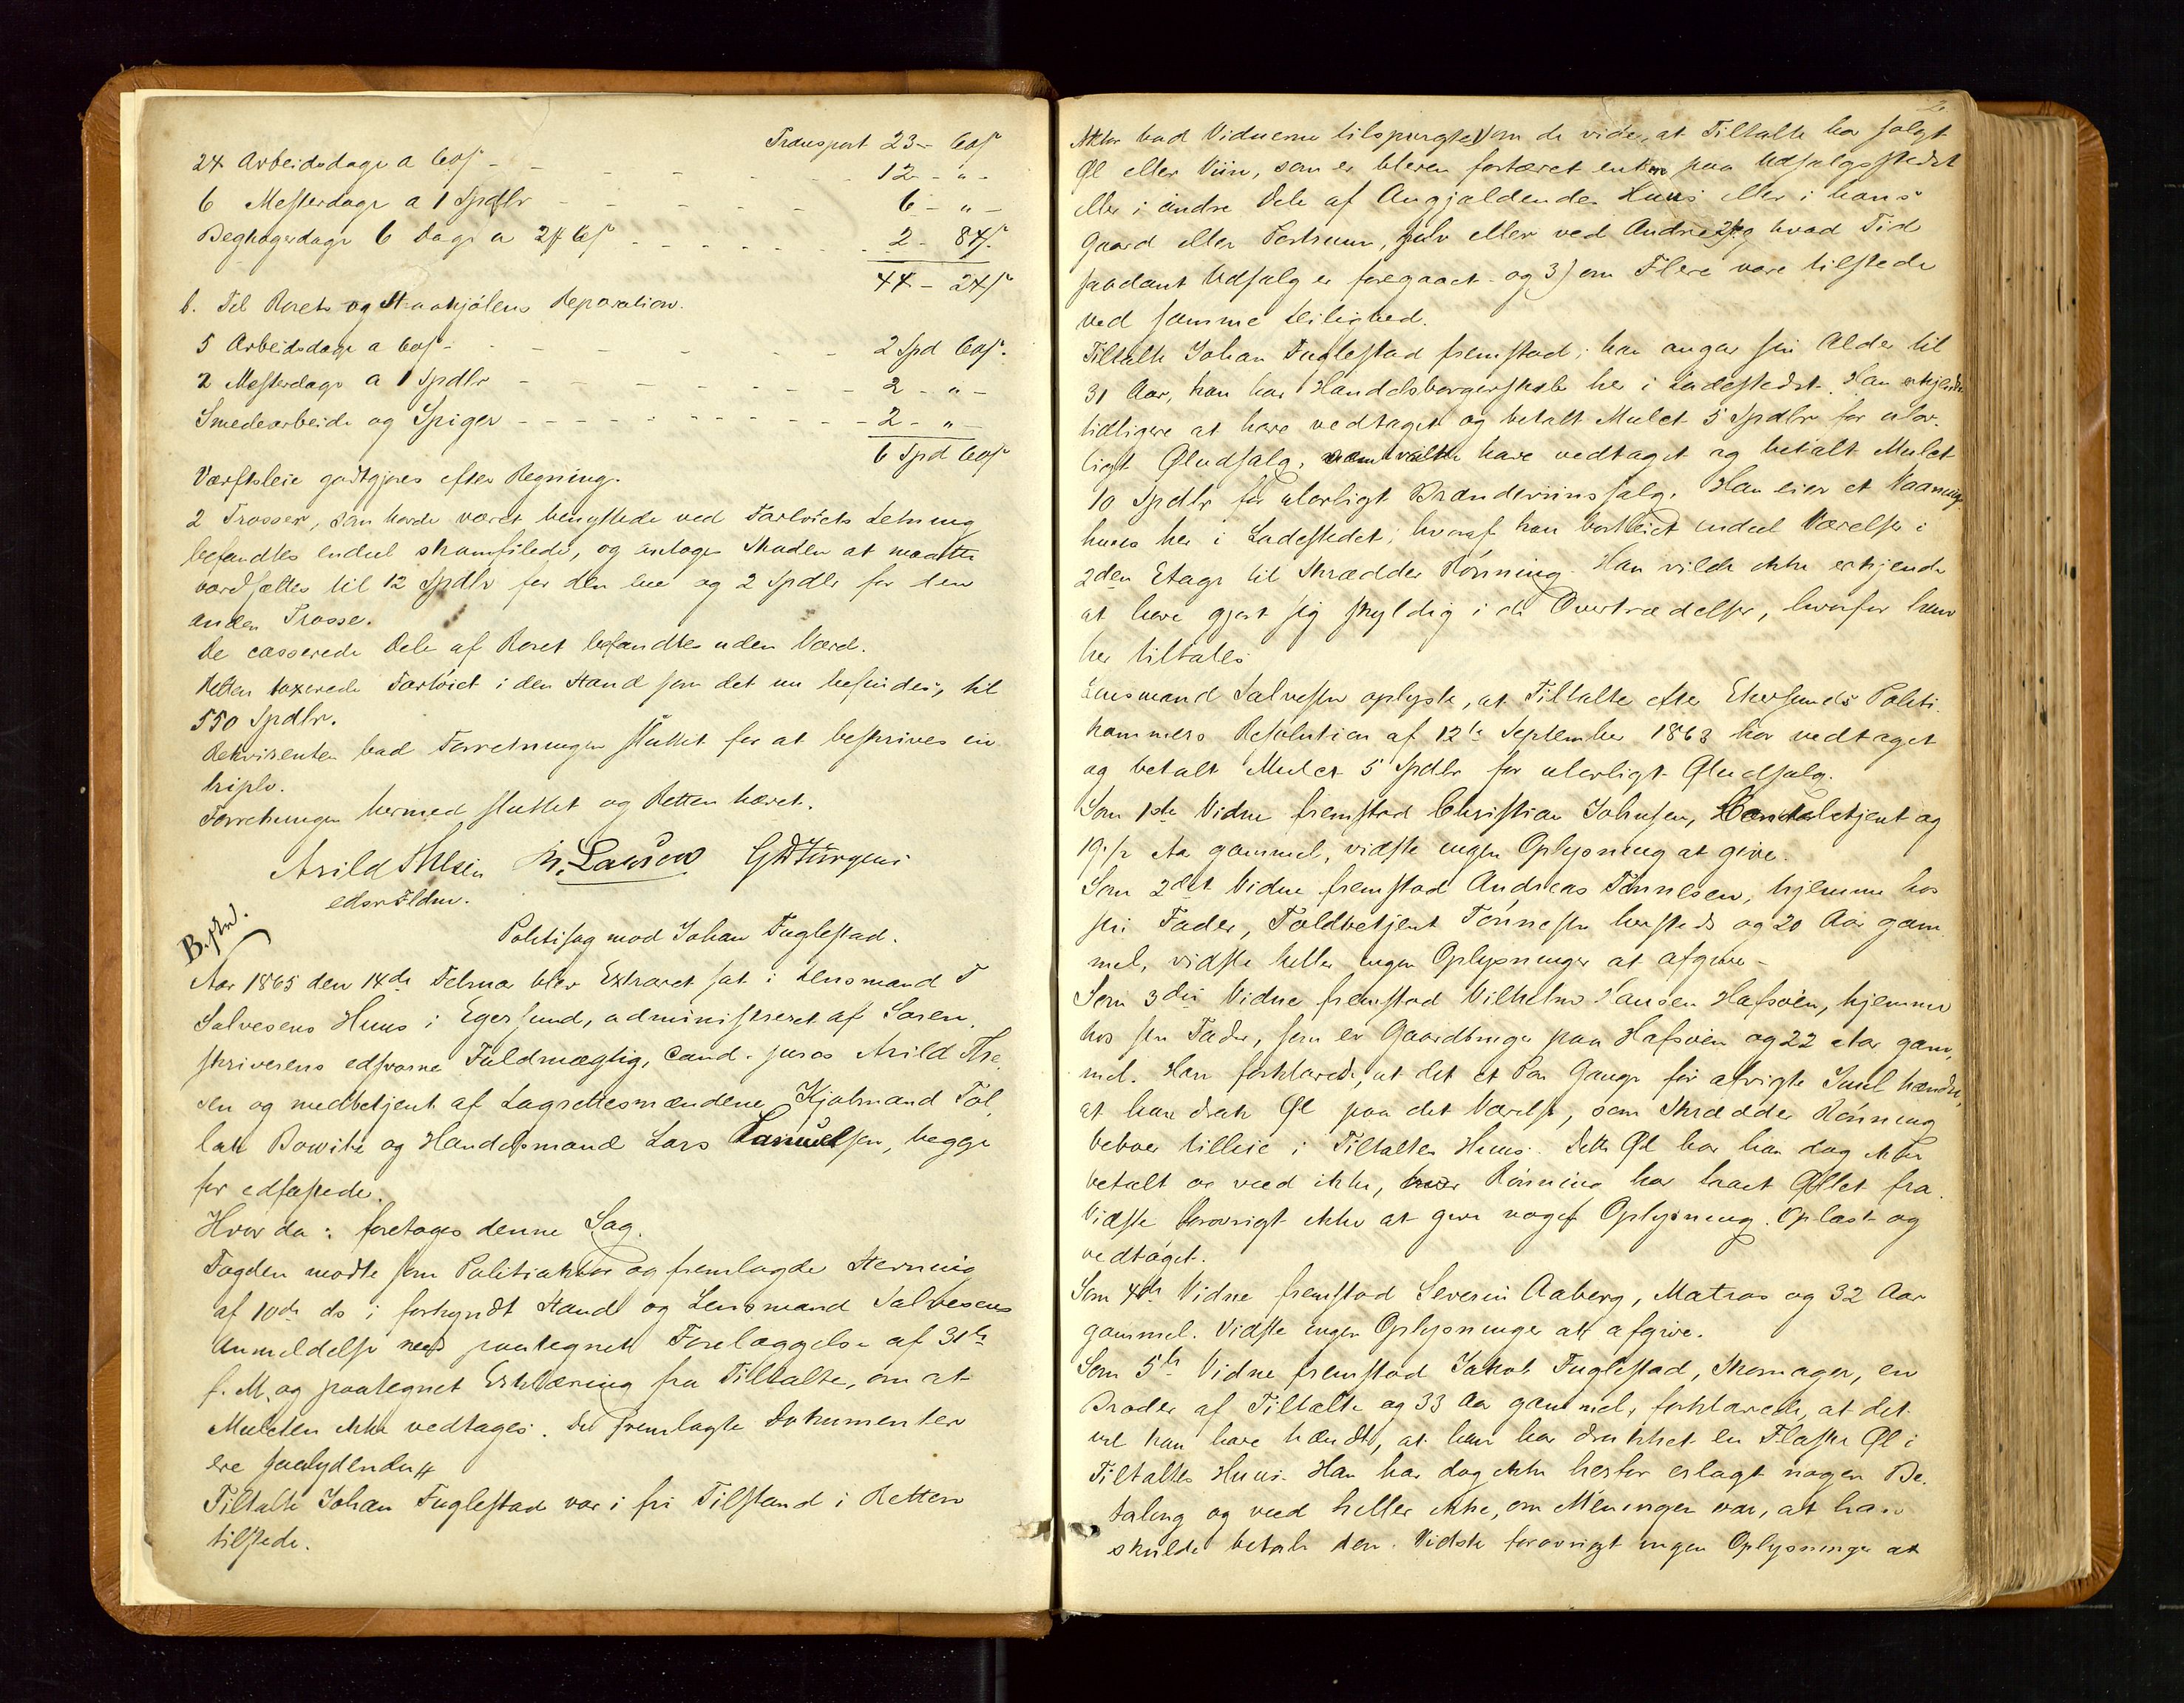 Transport 23 - 60 s
24 Arbeidsdage a 60 s - - - - - - 12 - " -
6 Mesterdage a 1 Spdlr - - - - - 6 - " -
Begkogerdage 6 Dage a 2 # 6 s - - - - - 2 - 84 s.
44 - 24 s
b. Til Rorets og Straakjølens Reparation.
5 Arbeidsdage a 60 s - - - - - - 2 Spd 60 s.
2 Mesterdage a 1 Spdlr - - - - - - 2 - " -
Smedearbeide og Spiger - - - - - - 2 - " -
6 Spd 60 s
Værftsleie godtgjøres efter Regning.
2 Trosser, som havde været benyttede ved Fartøiets Letning
befandtes endeel skamfilede, og antoges Skaden at maatte
værdsættes til 12 Spdlr for den ene og 2 Spdlr for den
anden Trosse.
De casserede Dele af Roret befandtes uden Værd.
Retten taxerede Fartøiet i den Stand som det nu befindes, til
550 Spdlr.
Rekvirenten bad Forretningen sluttet for at beskrives in
triplo.
Forretningen hermed sluttet og Retten hævet.
Arild Thlsen M. Lawson G W Jürgens
edsv. Fldm.
B.skr.
Politisag mod Johan Fuglestad.
Aar 1865 den 14de Februar blev Extraret sat i Lensmand T
Salvesens Huus i Egersund, administreret af Soren
skriverens edsvorne Fuldmægtig, Cand. juris Arild The
sen og medbetjent af Lagrettesmændene Kjøbmand Tol
lak Bowitz og Handelsmand Lars Samuelsen, begge
før edfæstede.
Hvor da: foretoges denne Sag.
Fogden mødte som Politiaktor og fremlagde Stevning
af 10de ds i forkyndt Stand og Lensmand Salvesens
Anmeldelse med paategnet Forelæggelse af 31te
f. M. og paategnet Erklæring fra Tiltalte, om at
Mulcten ikke vedtages. De fremlagte Dokumenter
ere saalydende #
Tiltalte Johan Fuglestad var i fri Tilstand i Retten
tilstede.
2
Aktor bad Vidnerne tilspurgte 1) om de vide, at Tiltalte har solgt
Øl eller Viin, som er bleven fortæret enten paa Udsalgsstedet
eller i andre Dele af Angjældendes Huus eller i hans
Gaard eller Portrum, selv eller ved Andre 2) og hvad Tid
saadant Udsalg er foregaaet og 3) om Flere vare tilstede
ved samme Leilighed.
Tiltalte Johan Fuglestad fremstod; han angav sin Alder til
31 Aar, han har Handelsborgerskab her i Ladestedet. Han erkjendte
tidligere at have vedtaget og betalt Mulct 5 Spdlr for ulov-
ligt Øludsalg, have vedtaget og betalt Mulct
10 Spdlr for ulovligt Brændeviinssalg. Han eier et Vaanings
huus her i Ladestedet, hvoraf han bortleiet endeel Værelser i
2den Etage til Skrædder Rønning. Han vilde ikke erkjende
at have gjort sig skyldig i de Overtrædelser, hvorfor han
her tiltales
Lensmand Salvesen oplyste, at Tiltalte efter Ekersunds Politi
kammers Resolution af 12te September 1863 har vedtaget
og betalt Mulct 5 Spdlr for ulovligt Øludsalg.
Som 1ste Vidne fremstod Christian Johnsen, Handelsbetjent og
19 1/2 Aar gammel, vidste ingen Oplysning at give.
Som 2det Vidne fremstod Andreas Tønnesen, hjemme hos
sin Fader, Toldbetjent Tønnesen hersteds og 20 Aar gam
mel, vidste heller ingen Oplysninger at afgive -
Som 3die Vidne fremstod Vilhelm Hansen Hafsøen, hjemme
hos sin Fader, som er Gaardbruger paa Hafsøen og 22 Aar gam
mel. Han forklarede, at det et Par Gange før afvigte Juul hændte,
at han drak Øl paa det Værelse, som Skrædder Rønning
beboer tilleie i Tiltaltes Huus. Dette Øl har han dog ikke
betalt og veed ikke, hvor Rønning har taget Øllet fra.
Vidste forøvrigt ikke at give noget Oplysning. Oplæst og
vedtaget.
Som 4de Vidne fremstod Severin Aaberg, Matros og 32 Aar
gammel. Vidste ingen Oplysninger at afgive.
Som 5te Vidne fremstod Jakob Fuglestad, Skomager, en
Broder af Tiltalte og 33 Aar gammel, forklarede, at det
vel kan have hændt, at han har drukket en Flaske Øl i
Tiltaltes Huus. Han har dog ikke herfor erlagt nogen Be
taling og veed heller ikke, om Meningen var, at han
skulde betale den. Vidste forøvrigt ingen Oplysninger at